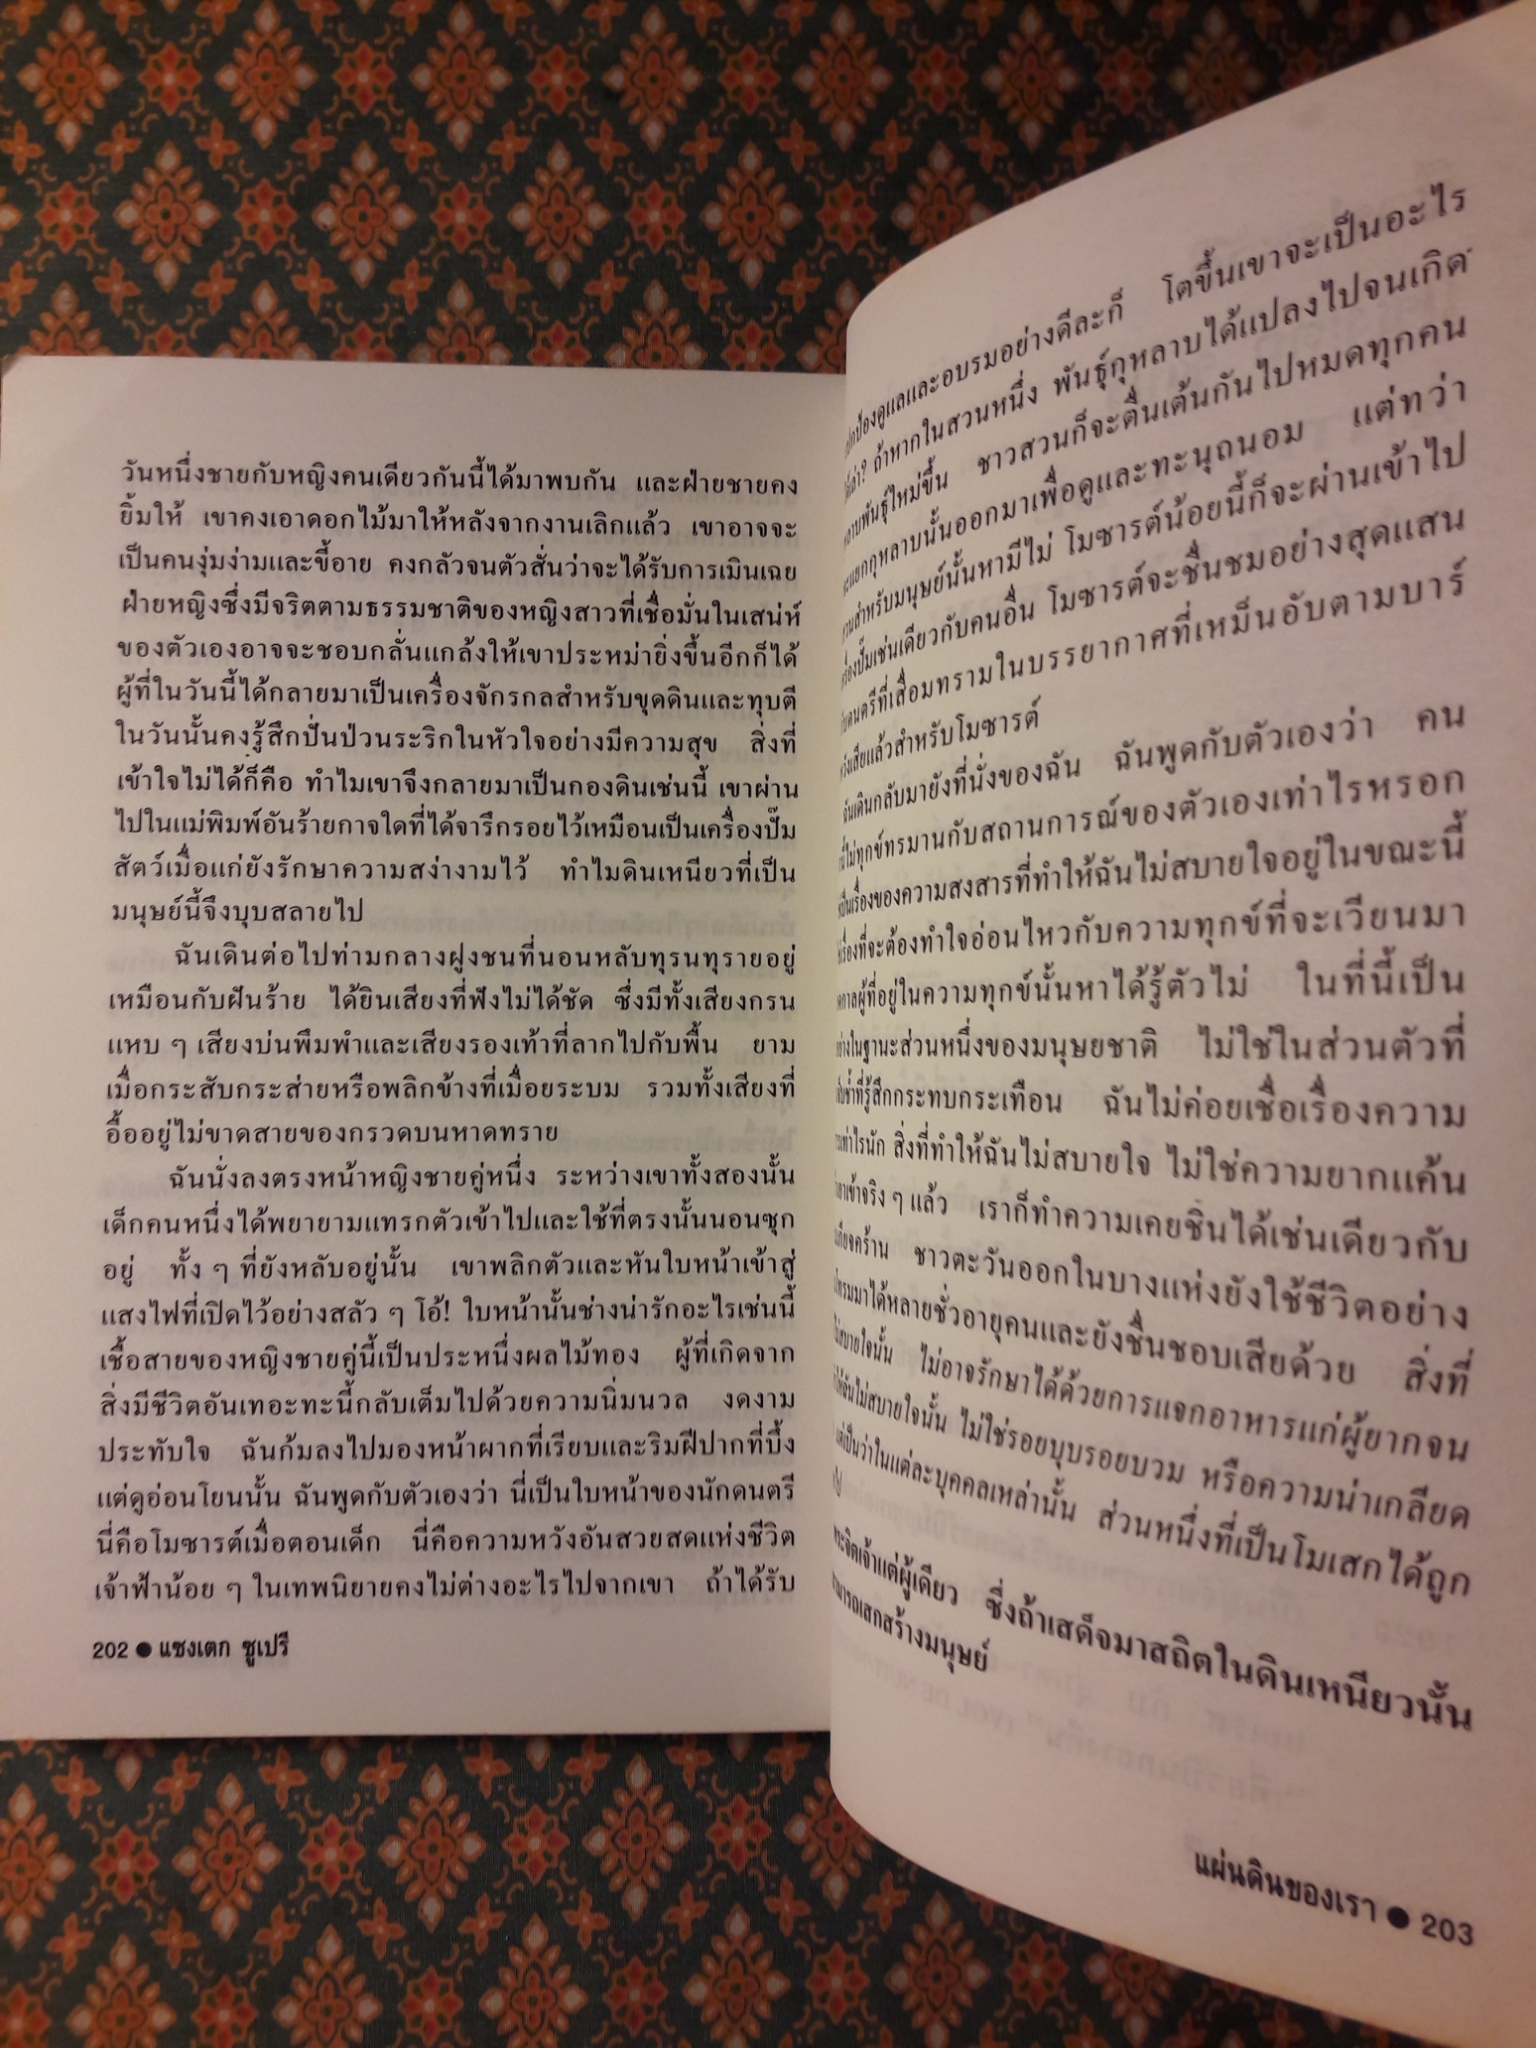 วันหนึ่งชายกับหญิงคนเดียวกันนี้ได้มาพบกัน และฝ่ายชายคง
ยิ้มให้ เขาคงเอาดอกไม้มาให้หลังจากงานเลิกแล้ว เขาอาจจะ
เป็นคนงุ่มง่ามและขี้อาย คงกลัวจนตัวสั่นว่าจะได้รับการเมินเฉย
ฝ่ายหญิงซึ่งมีจริตตามธรรมชาติของหญิงสาวที่เชื่อมั่นในเสน่ห์
ของตัวเองอาจจะชอบกลั่นแกล้งให้เขาประหม่ายิ่งขึ้นอีกก็ได้
ผู้ที่ในวันนี้ได้กลายมาเป็นเครื่องจักรกลสำหรับขุดดินและทุบตี
ในวันนั้นคงรู้สึกปั่นป่วนระริกในหัวใจอย่างมีความสุข สิ่งที่
เข้าใจไม่ได้ก็คือ ทำไมเขาจึงกลายมาเป็นกองดินเช่นนี้ เขาผ่าน
ไปในแม่พิมพ์อันร้ายกาจใดที่ได้จารึกรอยไว้เหมือนเป็นเครื่องปั๊ม
สัตว์เมื่อแก่ยังรักษาความสง่างามไว้ ทำไมดินเหนียวที่เป็น
มนุษย์นี้จึงบุบสลายไป
ฉันเดินต่อไปท่ามกลางฝูงชนที่นอนหลับทุรนทุรายอยู่
เหมือนกับฝันร้าย ได้ยินเสียงที่ฟังไม่ได้ชัด ซึ่งมีทั้งเสียงกรน
แหบ ๆ เสียงบ่นพึมพำและเสียงรองเท้าที่ลากไปกับพื้น ยาม
เมื่อกระสับกระส่ายหรือพลิกข้างที่เมื่อยระบม รวมทั้งเสียงที่
อื้ออยู่ไม่ขาดสายของกรวดบนหาดทราย
ฉันนั่งลงตรงหน้าหญิงชายคู่หนึ่ง ระหว่างเขาทั้งสองนั้น
เด็กคนหนึ่งได้พยายามแทรกตัวเข้าไปและใช้ที่ตรงนั้นนอนซุก
อยู่ ทั้ง ๆ ที่ยังหลับอยู่นั้น เขาพลิกตัวและหันใบหน้าเข้าสู่
แสงไฟที่เปิดไว้อย่างสลัว ๆ โอ้! ใบหน้านั้นช่างน่ารักอะไรเช่นนี้
เชื้อสายของหญิงชายคู่นี้เป็นประหนึ่งผลไม้ทอง ผู้ที่เกิดจาก
สิ่งมีชีวิตอันเทอะทะนี้กลับเต็มไปด้วยความนิ่มนวล งดงาม
ประทับใจ ฉันก้มลงไปมองหน้าผากที่เรียบและริมฝีปากที่บึ้ง
แต่ดูอ่อนโยนนั้น ฉันพูดกับตัวเองว่า นี่เป็นใบหน้าของนักดนตรี
นี่คือโมซารต์เมื่อตอนเด็ก นี่คือความหวังอันสวยสดแห่งชีวิต
เจ้าฟ้าน้อย ๆ ในเทพนิยายคงไม่ต่างอะไรไปจากเขา ถ้าได้รับ
202 ● แซงเตก ซูเปรี
ดูแลและอบรมอย่างดีละก็ โตขึ้นเขาจะเป็นอะไร
ถ้าหากในสวนหนึ่ง พันธุ์กุหลาบได้แปลงไปจนเกิด
พันธุ์ใหม่ขึ้น ชาวสวนก็จะตื่นเต้นกันไปหมดทุกคน
กุหลาบนั้นออกมาเพื่อดูและทะนุถนอม แต่ทว่า
สำหรับมนุษย์นั้นหามีไม่ โมซารต์น้อยนี้ก็จะผ่านเข้าไป
เช่นเดียวกับคนอื่น โมซารต์จะชื่นชมอย่างสุดแสน
ดนตรีที่เสื่อมทรามในบรรยากาศที่เหม็นอับตามบาร์
เสียแล้วสำหรับโมซารต์
ฉันเดินกลับมายังที่นั่งของฉัน ฉันพูดกับตัวเองว่า คน
ไม่ทุกข์ทรมานกับสถานการณ์ของตัวเองเท่าไรหรอก
เรื่องของความสงสารที่ทำให้ฉันไม่สบายใจอยู่ในขณะนี้
ที่จะต้องทำใจอ่อนไหวกับความทุกข์ที่จะเวียนมา
ผู้ที่อยู่ในความทุกข์นั้นหาได้รู้ตัวไม่ ในที่นี้เป็น
ในฐานะส่วนหนึ่งของมนุษยชาติ ไม่ใช่ในส่วนตัวที่
ที่รู้สึกกระทบกระเทือน ฉันไม่ค่อยเชื่อเรื่องความ
เท่าไรนัก สิ่งที่ทำให้ฉันไม่สบายใจ ไม่ใช่ความยากแค้น
เข้าจริง ๆ แล้ว เราก็ทำความเคยชินได้เช่นเดียวกับ
เกียจคร้าน ชาวตะวันออกในบางแห่งยังใช้ชีวิตอย่าง
มาได้หลายชั่วอายุคนและยังชื่นชอบเสียด้วย สิ่งที่
ไม่สบายใจนั้น ไม่อาจรักษาได้ด้วยการแจกอาหารแก่ผู้ยากจน
ให้ฉันไม่สบายใจนั้น ไม่ใช่รอยบุบรอยบวม หรือความน่าเกลียด
แต่เป็นว่าในแต่ละบุคคลเหล่านั้น ส่วนหนึ่งที่เป็นโมเสกได้ถูก
พระจิตเจ้าแต่ผู้เดียว ซึ่งถ้าเสด็จมาสถิตในดินเหนียวนั้น
สามารถเสกสร้างมนุษย์
แผ่นดินของเรา ● 203